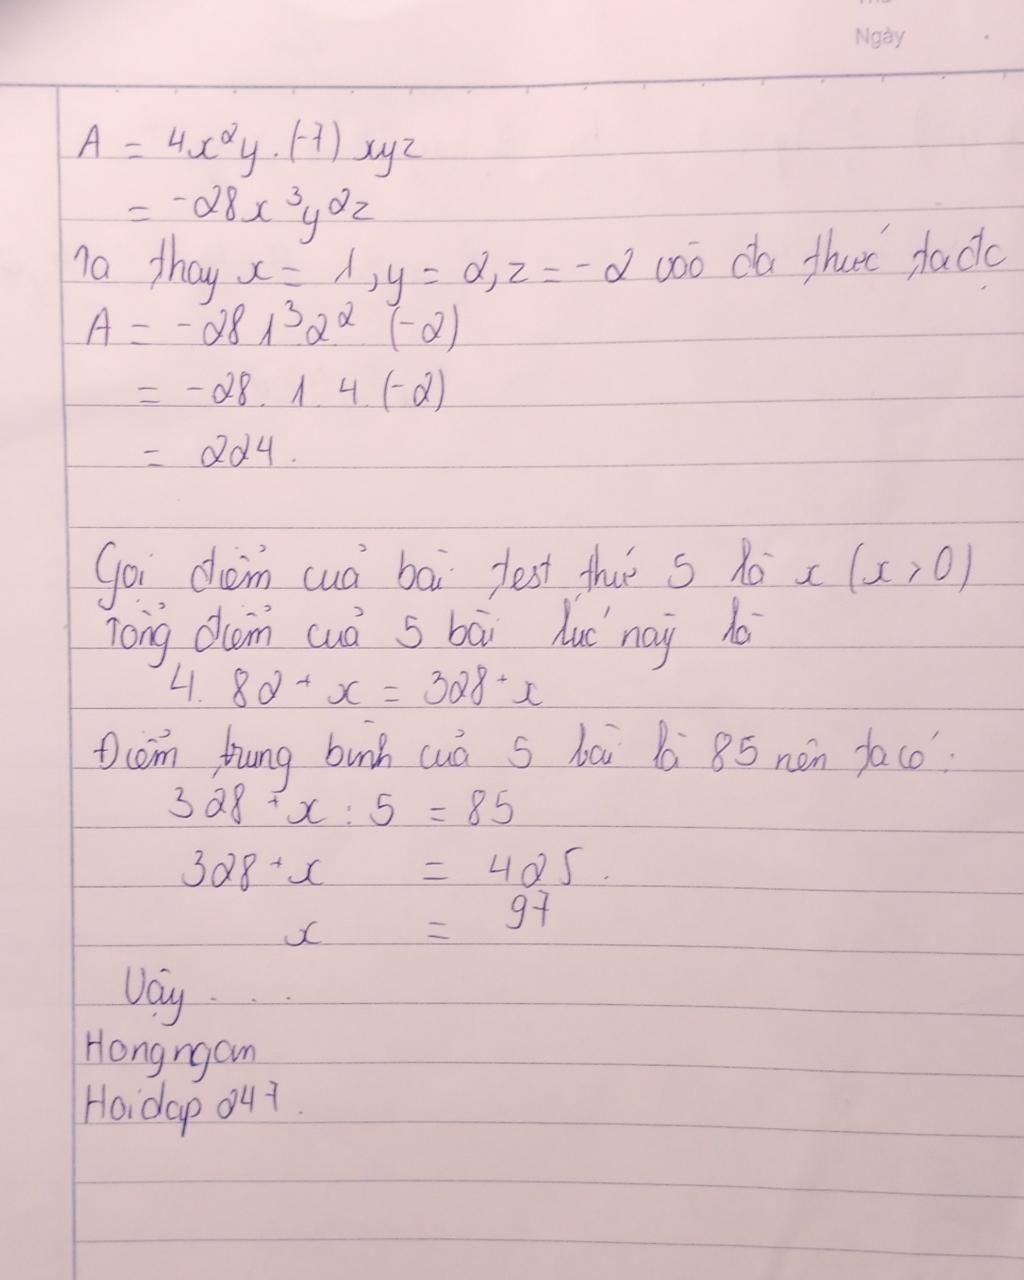 Ngày
A = 4x²y . (-7) xyz
= -28x³y²z
Ta thay x = 1, y = 2, z = -2 vào đa thức ta đc
A = -28 1³2² (-2)
= -28. 1 4 (-2)
= 224.
Gọi điểm cuả bài test thứ 5 là x (x > 0)
Tổng điểm cuả 5 bài lúc này là
4. 82 + x = 328 + x
Điểm trung bình cuả 5 bài là 85 nên ta có :
328 + x : 5 = 85
328 + x = 425.
x = 97
Vậy . . .
Hongngan
Hoidap 247.